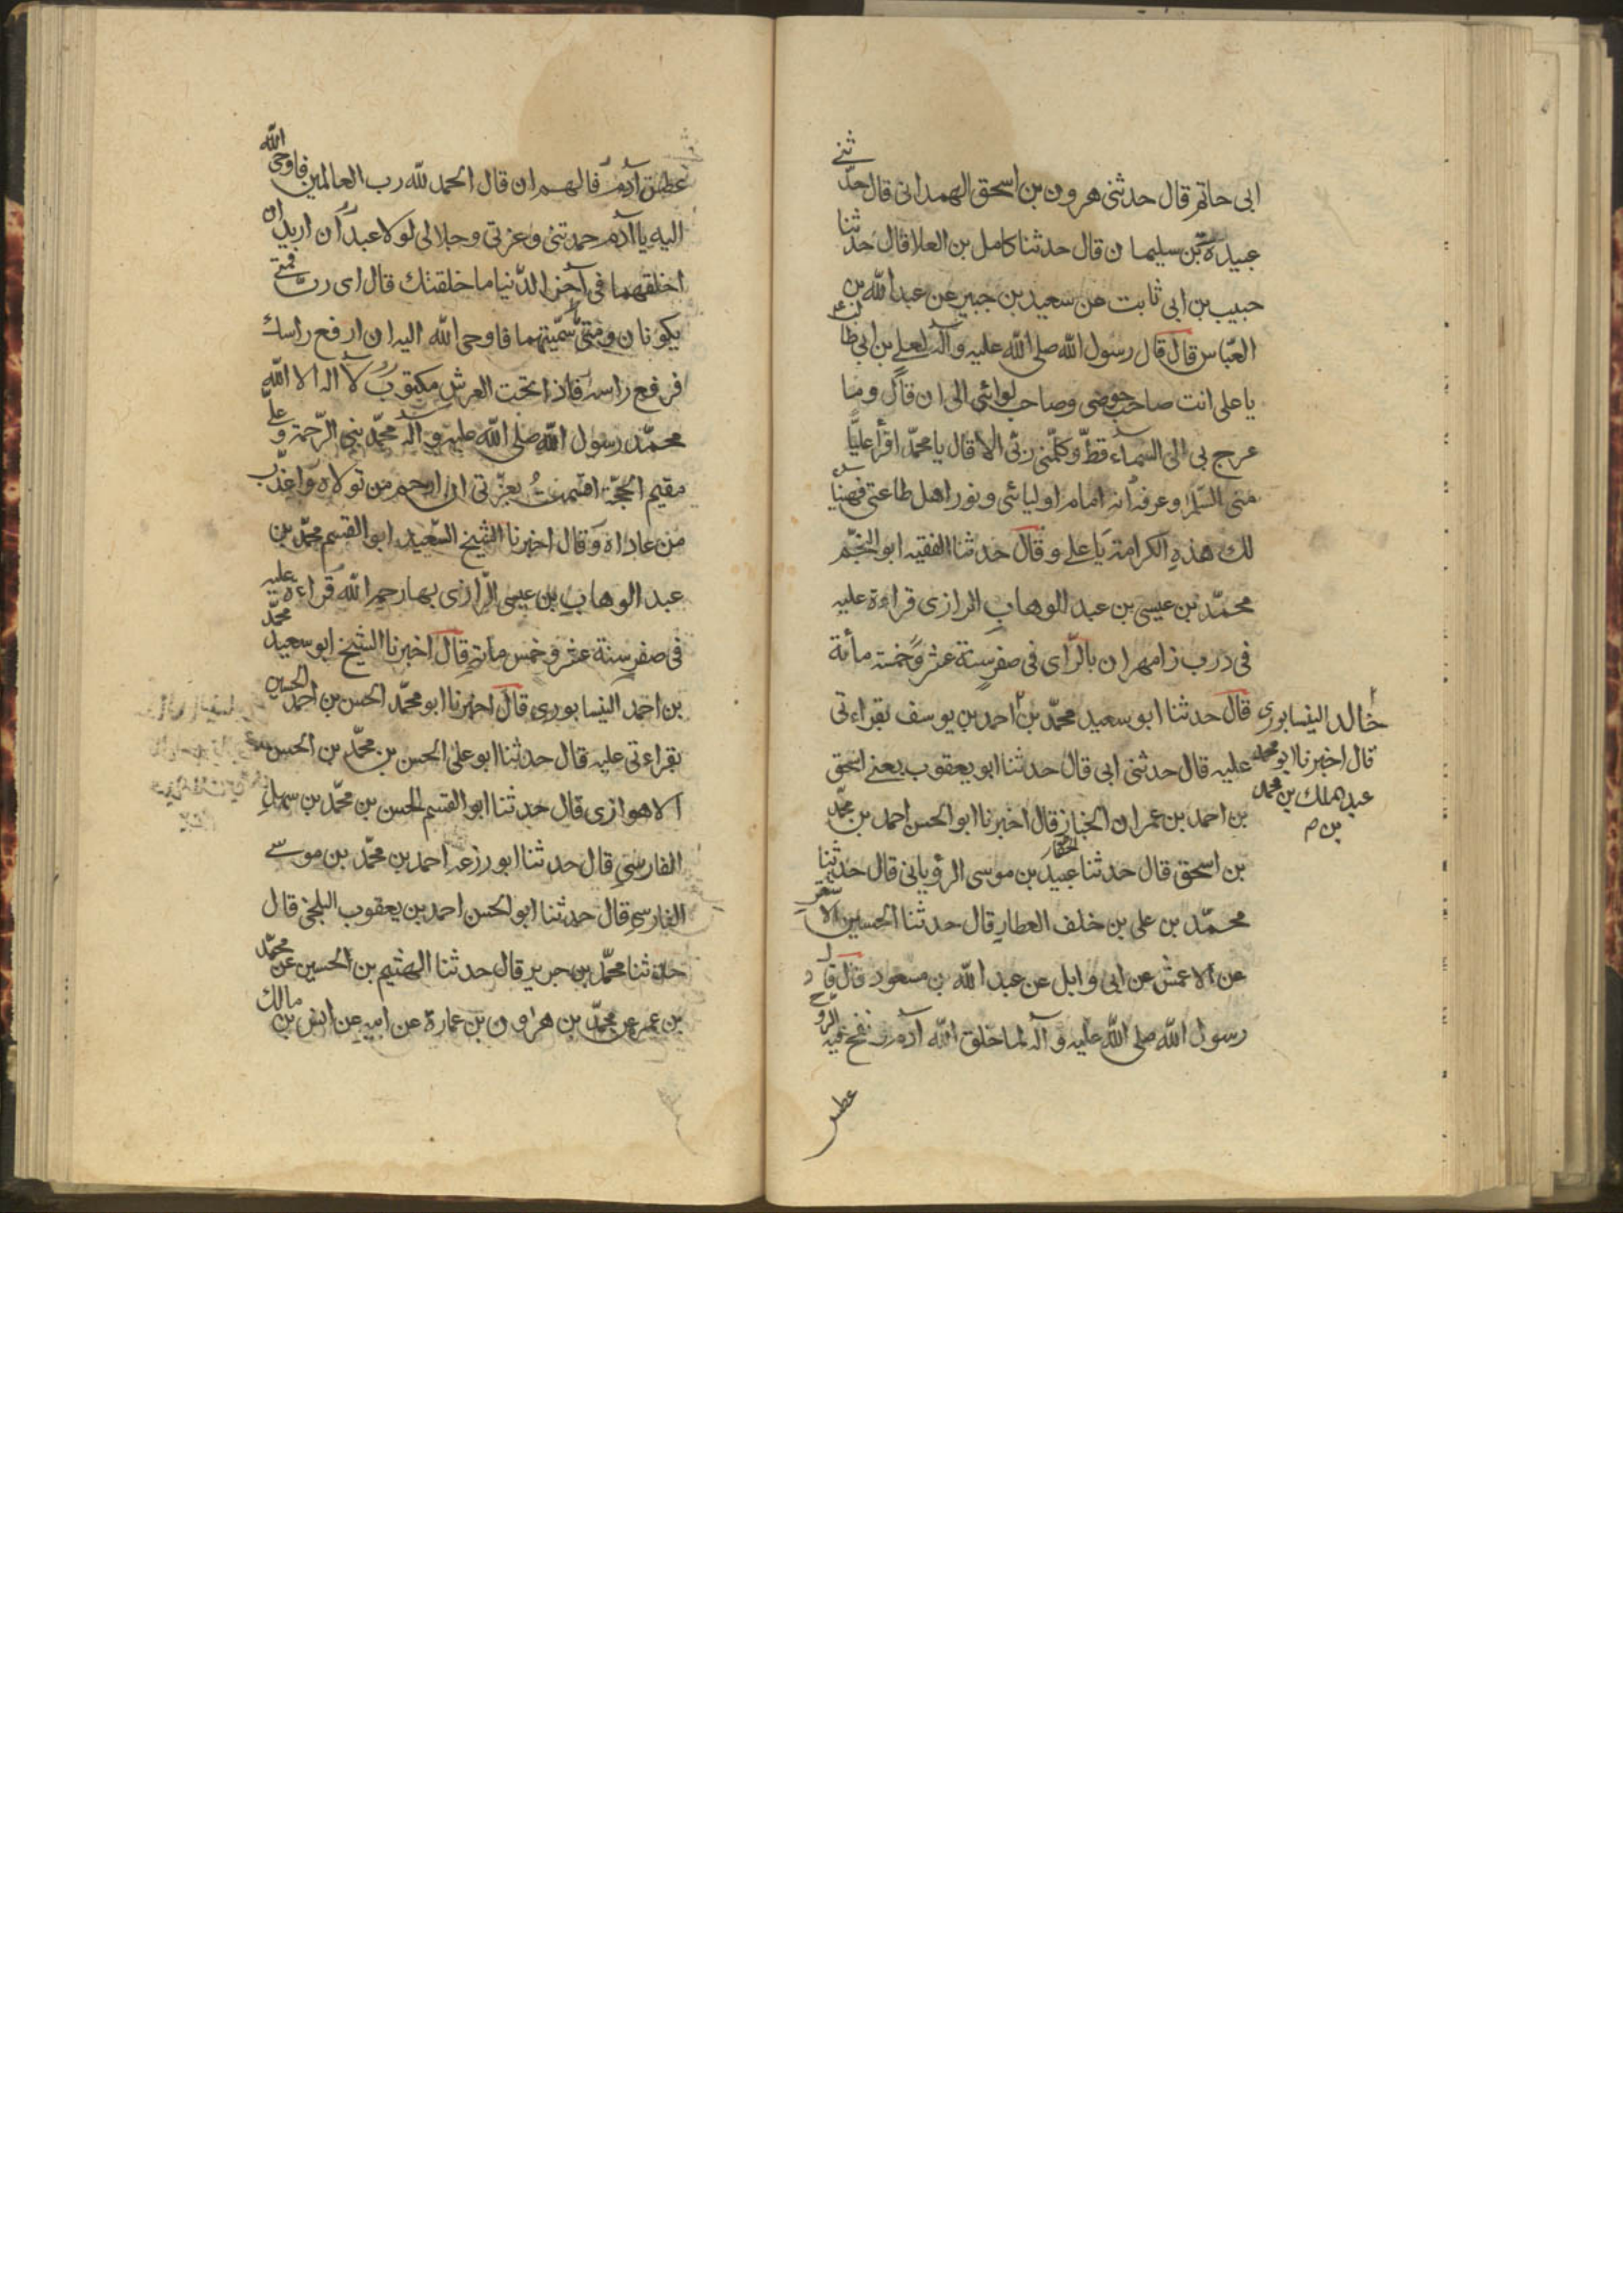 ابى حاتم قال حدثنى هرون بن اسحق الهمدانى قال حدّثنى
عبيدة بن سليمان قال حدثنا كامل بن العلا قال حدثنا
حبيب بن ابى ثابت عن سعيد بن جبير عن عبد الله بن
العبّاس قال قال رسول الله صلى الله عليه وآله لعلى بن ابى طالب
يا على انت صاحب حوضى وصاحب لوائى الى ان قال وما
عرج بى الى السماء قطّ وكلّمنى ربّى الا قال يا محمّد اقرأ عليّا
منى السّلم وعرفه انه امام اوليائى ونور اهل طاعتى فهنيئا
لك هذه الكرامة يا على وقال حدثنا الفقيه ابو النجم
محمّد بن عيسى بن عبد الوهاب الرازى قراءة عليه
فى درب زامهران بالرّاى فى صفر سنة عشر وخمسة مأئة
قال حدثنا ابو سعيد محمّد بن احمد بن يوسف بقراءتى
عليه قال حدثنى ابى قال حدثنا ابو يعقوب يعنى اسحق
بن احمد بن عمران الخباز قال اخبرنا ابو الحسن احمد بن محمّد
بن اسحق قال حدثنا عبيد بن موسى الرؤيانى قال حدثنا
محمّد بن على بن خلف العطار قال حدثنا الحسين الاشقر
عن الاعمش عن ابى وايل عن عبد الله بن مسعود قال قال
رسول الله صلى الله عليه وآله لما خلق الله آدم و نفخ فيه الروح
عطس
خالد النيسابورى
قال اخبرنا ابو محمد
عبد الملك بن محمد
بن ص
عطس آدم فالهم ان قال الحمد لله رب العالمين فاوحى الله
اليه يا آدم حمدتنى وعزتى وجلالى لولا عبدان اريد ان
اخلقهما فى آخر الدّنيا ما خلقتك قال اى ربّ فمتى
يكونان ومتى سمّيتهما فاوحى الله اليه ان ارفع راسك
فرفع راسه فاذا تحت العرش مكتوب لا اله الا الله
محمّد رسول الله صلى الله عليه وآله محمّد نبى الرّحمة وعلىّ
مقيم الحجّة اقسمت بعزّتى ان ارحم من تولاه واعذّب
من عاداه وقال اخبرنا الشيخ السّعيد ابو القسم محمّد بن
عبد الوهاب بن عيسى الرّازى بها رحمه الله قراءة عليه
فى صفر سنة عشر وخمس مأئة قال اخبرنا الشيخ ابو سعيد محمّد
بن احمد النيسابورى قال اخبرنا ابو محمّد الحسن بن احمد الحسين
بقراءتى عليه قال حدثنا ابو على الحسن بن محمّد بن الحسن
الاهوازى قال حدثنا ابو القسم الحسن بن محمّد بن سهل
الفارسى قال حدثنا ابو زرعه احمد بن محمّد بن موسى
الفارسى قال حدثنا ابو الحسن احمد بن يعقوب البلخى قال
حدثنا محمّد بن جرير قال حدثنا الهيثم بن الحسين عن محمّد
بن عمر عن محمّد بن هرون بن عمارة عن ابيه عن انس بن مالك